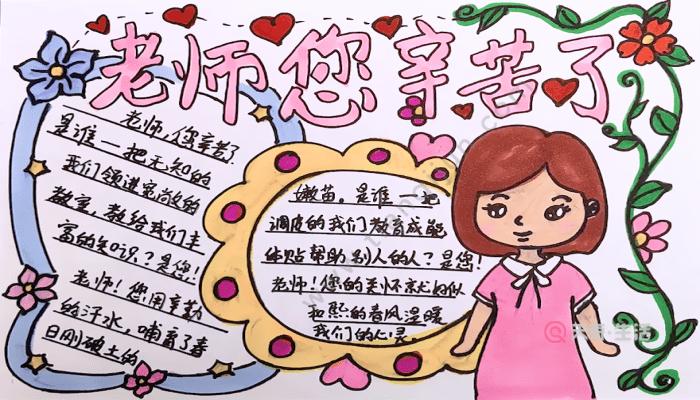 老师您辛苦了
老师,您辛苦了
是谁一把无知的
我们领进宽敞的
教室,教给我们丰
富的知识?是您!
老师!您用辛勤
的汗水,哺育了春
日刚破土的
嫩苗。是谁一把
调皮的我们教育成能
体贴帮助别人的人?是您!
老师!您的关怀就好似
和熙的春风温暖
我们的心灵。